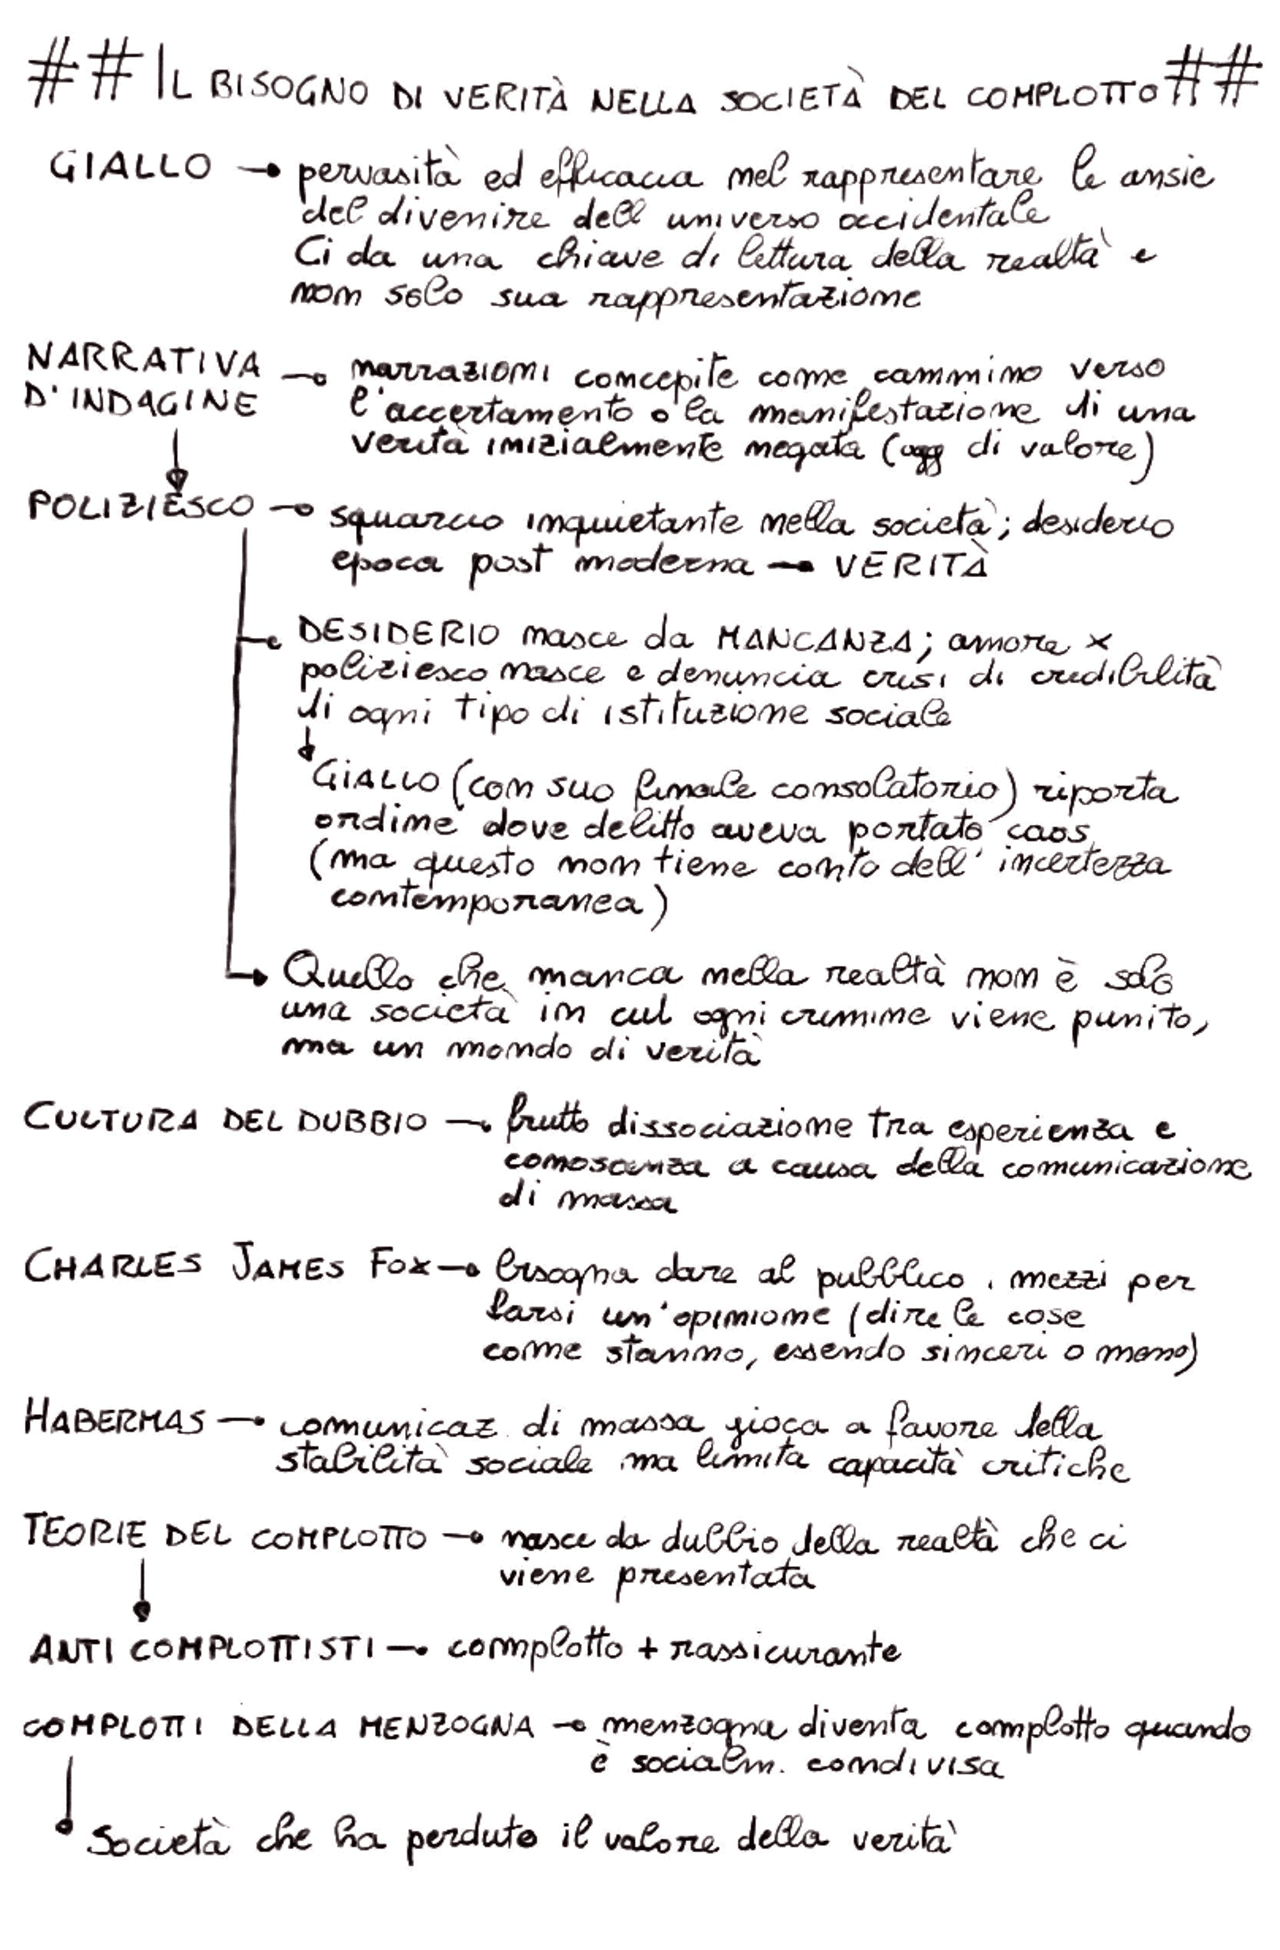 ## IL BISOGNO DI VERITÀ NELLA SOCIETÀ DEL COMPLOTTO ##
GIALLO → pervasità ed efficacia nel rappresentare le ansie
del divenire dell universo occidentale
Ci da una chiave di lettura della realtà e
non solo sua rappresentazione
NARRATIVA D'INDAGINE → narrazioni concepite come cammino verso
l'accertamento o la manifestazione di una
verità inizialmente negata (ogg di valore)
POLIZIESCO → squarcio inquietante nella società; desiderio
epoca post moderna → VERITÀ
DESIDERIO nasce da MANCANZA; amore x
poliziesco nasce e denuncia crisi di credibilità
di ogni tipo di istituzione sociale
GIALLO (con suo finale consolatorio) riporta
ordine dove delitto aveva portato caos
(ma questo non tiene conto dell'incertezza
contemporanea)
Quello che manca nella realtà non è solo
una società in cui ogni crimine viene punito,
ma un mondo di verità
CULTURA DEL DUBBIO → frutto dissociazione tra esperienza e
conoscenza a causa della comunicazione
di massa
CHARLES JAMES FOX → bisogna dare al pubblico i mezzi per
farsi un'opinione (dire le cose
come stanno, essendo sinceri o meno)
HABERMAS → comunicaz di massa gioca a favore della
stabilità sociale ma limita capacità critiche
TEORIE DEL COMPLOTTO → nasce da dubbio della realtà che ci
viene presentata
ANTI COMPLOTTISTI → complotto + rassicurante
COMPLOTTI DELLA MENZOGNA → menzogna diventa complotto quando
è socialm. condivisa
Società che ha perduto il valore della verità